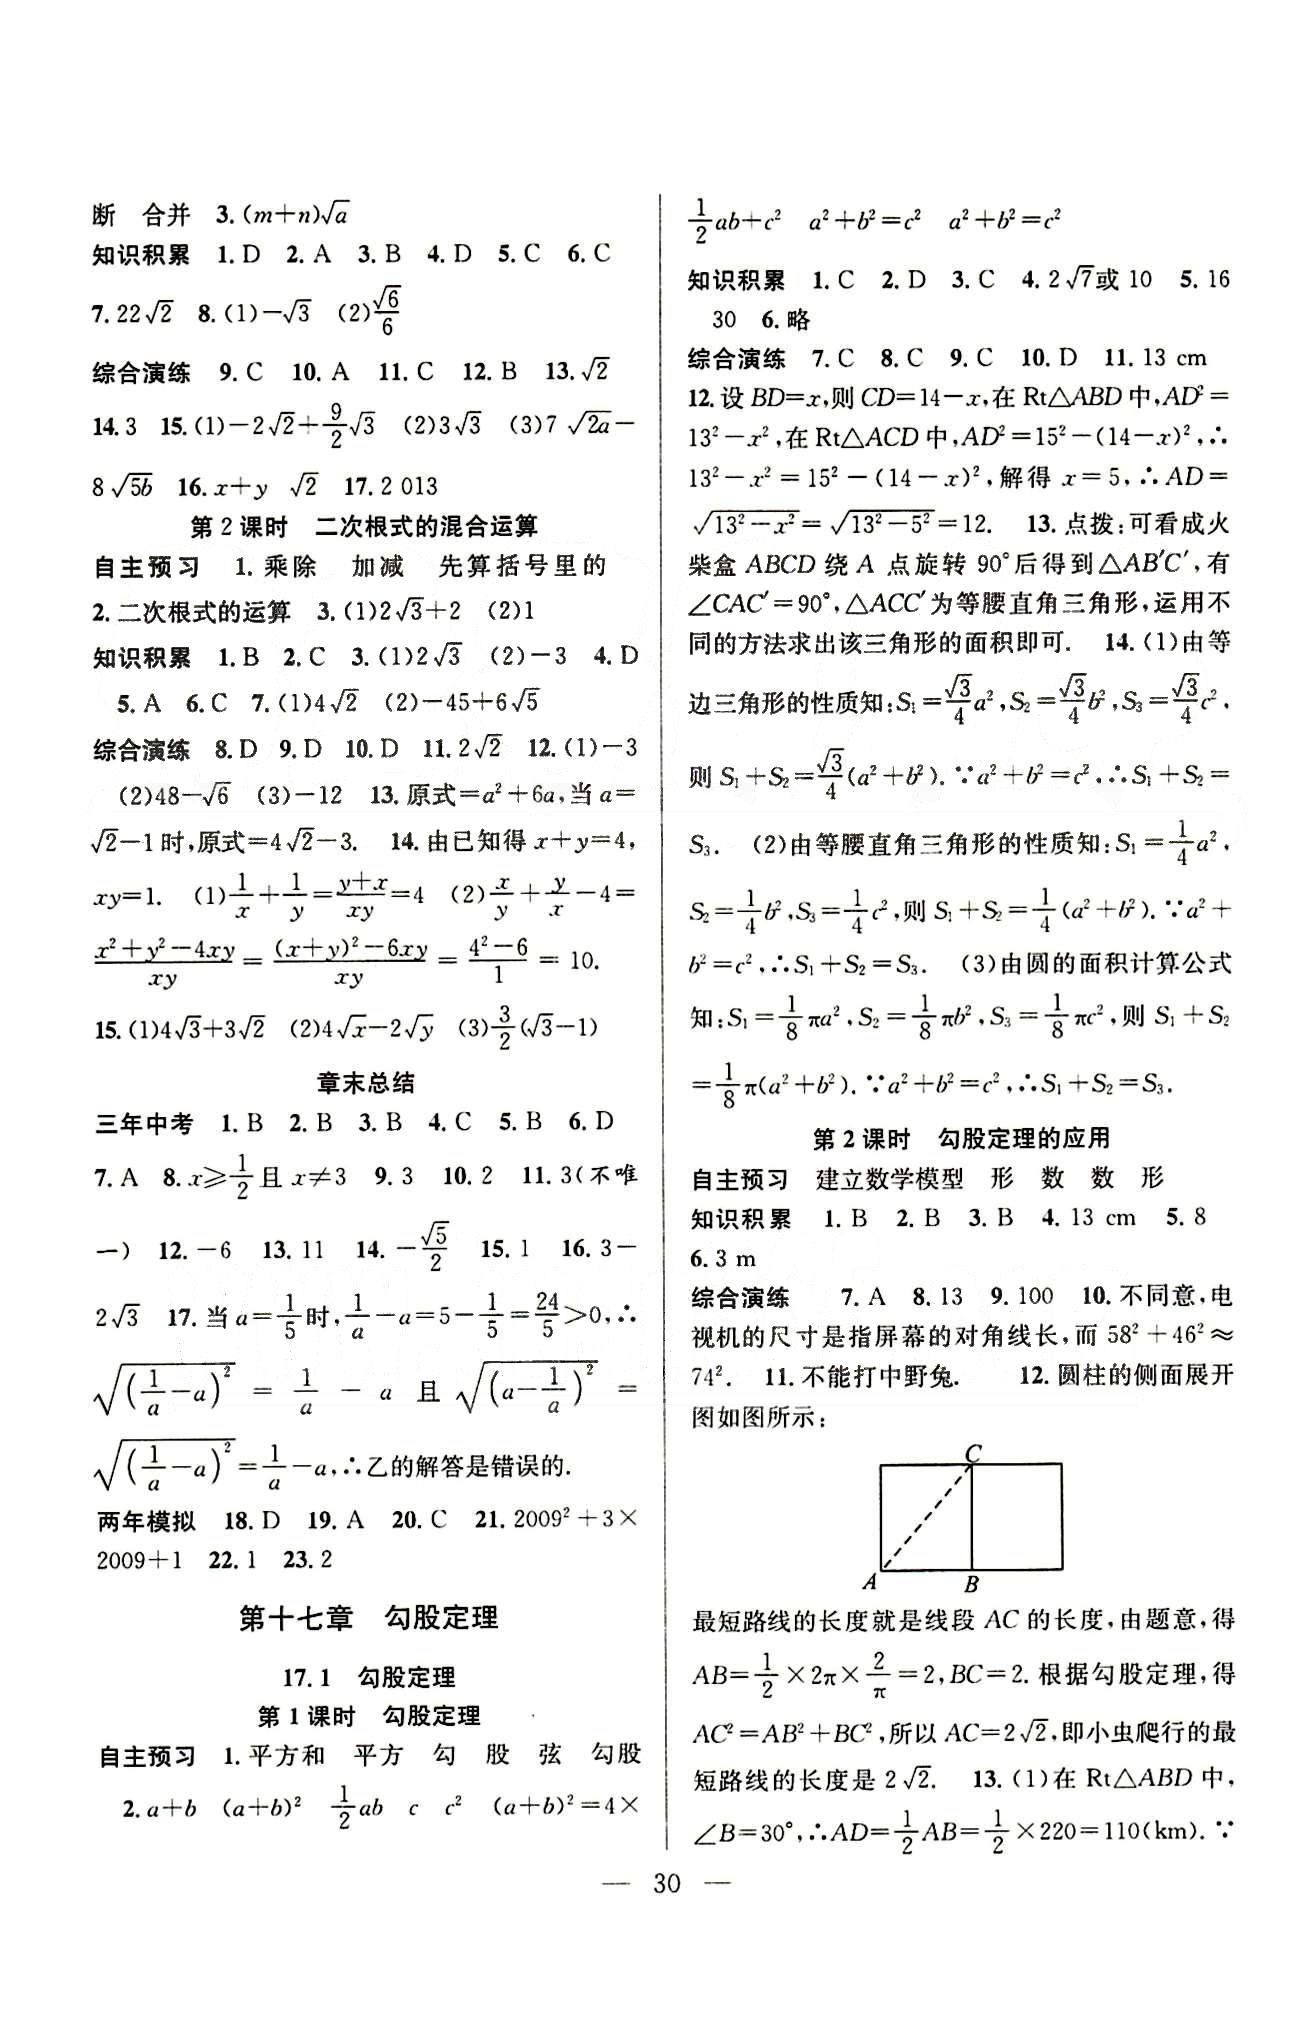 断 合并 3. (m+n)√a
知识积累 1. D 2. A 3. B 4. D 5. C 6. C
7. 22√2 8. (1)-√3 (2)√6/6
综合演练 9. C 10. A 11. C 12. B 13. √2
14. 3 15. (1)-2√2+9/2√3 (2)3√3 (3)7√2a-
8√5b 16. x+y √2 17. 2 013
第 2 课时 二次根式的混合运算
自主预习 1. 乘除 加减 先算括号里的
2. 二次根式的运算 3. (1)2√3+2 (2)1
知识积累 1. B 2. C 3. (1)2√3 (2)-3 4. D
5. A 6. C 7. (1)4√2 (2)-45+6√5
综合演练 8. D 9. D 10. D 11. 2√2 12. (1)-3
(2)48-√6 (3)-12 13. 原式=a²+6a,当 a=
√2-1 时,原式=4√2-3. 14. 由已知得 x+y=4,
xy=1. (1)1/x+1/y=(y+x)/xy=4 (2)x/y+y/x-4=
(x²+y²-4xy)/xy=((x+y)²-6xy)/xy=(4²-6)/1=10.
15. (1)4√3+3√2 (2)4√x-2√y (3)3/2(√3-1)
章末总结
三年中考 1. B 2. B 3. B 4. C 5. B 6. D
7. A 8. x⩾1/2且 x≠3 9. 3 10. 2 11. 3(不唯
一) 12. -6 13. 11 14. -√5/2 15. 1 16. 3-
2√3 17. 当 a=1/5时,1/a-a=5-1/5=24/5>0,∴
√(1/a-a)² = 1/a - a 且 √(a-1/a)² =
√(1/a-a)²=1/a-a,∴乙的解答是错误的.
两年模拟 18. D 19. A 20. C 21. 2009²+3×
2009+1 22. 1 23. 2
第十七章 勾股定理
17.1 勾股定理
第 1 课时 勾股定理
自主预习 1. 平方和 平方 勾 股 弦 勾股
2. a+b (a+b)² 1/2ab c c² (a+b)²=4×
1/2ab+c² a²+b²=c² a²+b²=c²
知识积累 1. C 2. D 3. C 4. 2√7或 10 5. 16
30 6. 略
综合演练 7. C 8. C 9. C 10. D 11. 13 cm
12. 设 BD=x,则 CD=14-x,在 Rt△ABD 中,AD²=
13²-x²,在 Rt△ACD 中,AD²=15²-(14-x)²,∴
13²-x²=15²-(14-x)²,解得 x=5,∴AD=
√13²-x²=√13²-5²=12. 13. 点拨:可看成火
柴盒 ABCD 绕 A 点旋转 90°后得到△AB′C′,有
∠CAC′=90°,△ACC′为等腰直角三角形,运用不
同的方法求出该三角形的面积即可. 14. (1)由等
边三角形的性质知:S₁=√3/4a²,S₂=√3/4b²,S₃=√3/4c²,
则 S₁+S₂=√3/4(a²+b²).∵a²+b²=c²,∴S₁+S₂=
S₃. (2)由等腰直角三角形的性质知:S₁=1/4a²,
S₂=1/4b²,S₃=1/4c²,则 S₁+S₂=1/4(a²+b²).∵a²+
b²=c²,∴S₁+S₂=S₃. (3)由圆的面积计算公式
知:S₁=1/8πa²,S₂=1/8πb²,S₃=1/8πc²,则 S₁+S₂
=1/8π(a²+b²).∵a²+b²=c²,∴S₁+S₂=S₃.
第 2 课时 勾股定理的应用
自主预习 建立数学模型 形 数 数 形
知识积累 1. B 2. B 3. B 4. 13 cm 5. 8
6. 3 m
综合演练 7. A 8. 13 9. 100 10. 不同意,电
视机的尺寸是指屏幕的对角线长,而 58²+46²≈
74². 11. 不能打中野兔. 12. 圆柱的侧面展开
图如图所示:
C
A B
最短路线的长度就是线段 AC 的长度,由题意,得
AB=1/2×2π×2/π=2,BC=2. 根据勾股定理,得
AC²=AB²+BC²,所以 AC=2√2,即小虫爬行的最
短路线的长度是 2√2. 13. (1)在 Rt△ABD 中,
∠B=30°,∴AD=1/2AB=1/2×220=110(km).∵
— 30 —